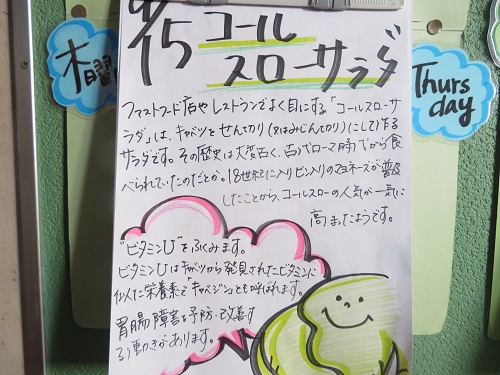 9/15 コール
スローサラダ
木曜
Thurs
day
ファストフード店やレストランでよく目にする「コールスローサ
ラダ」は、キャベツをせん切り(又はみじん切り)にして作る
サラダです。その歴史は大変古く、古代ローマ時代から食
べられていたのだとか。18世紀に入りビン入りのマヨネーズが普及
したことから、コールスローの人気が一気に
高まったようです。
"ビタミンU"をふくみます。
ビタミンUはキャベツから発見されたビタミンに
似た栄養素で「キャベジン」とも呼ばれます。
胃腸障害を予防・改善す
る働きがあります。